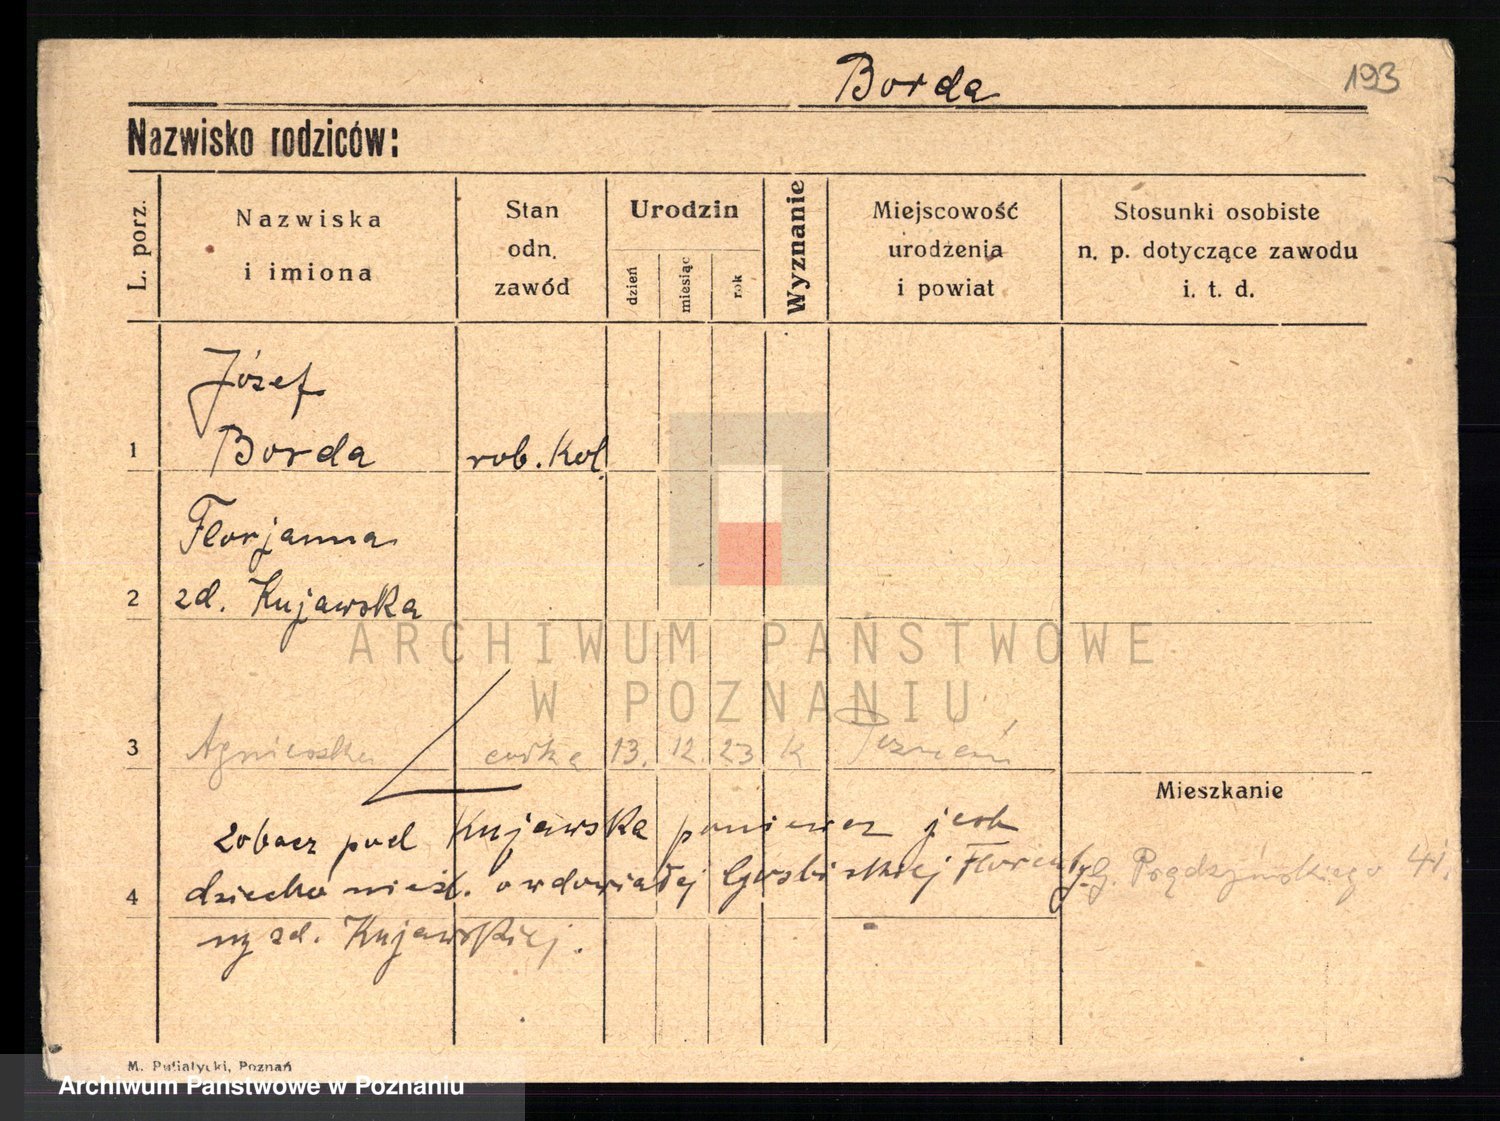 Borda
193
Nazwisko rodziców:
L. porz.
Nazwiska
i imiona
Stan
odn.
zawód
Urodzin
dzień
miesiąc
rok
Wyznanie
Miejscowość
urodzenia
i powiat
Stosunki osobiste
n. p. dotyczące zawodu
i. t. d.
Józef
1 Borda rob. Kol.
Florjanna
2 zd. Kujawska
ARCHIWUM PAŃSTWOWE
W POZNANIU
3 Agnieszka córka 13. 12. 23 k Poznań
Mieszkanie
Zobacz pod Kujawska ponieważ jest
4 dziecko nieśl. owdowiałej Florenty
G. Prądzyńskiego 41.
ny zd. Kujawskiej.
M. Putiatycki, Poznań
Archiwum Państwowe w Poznaniu